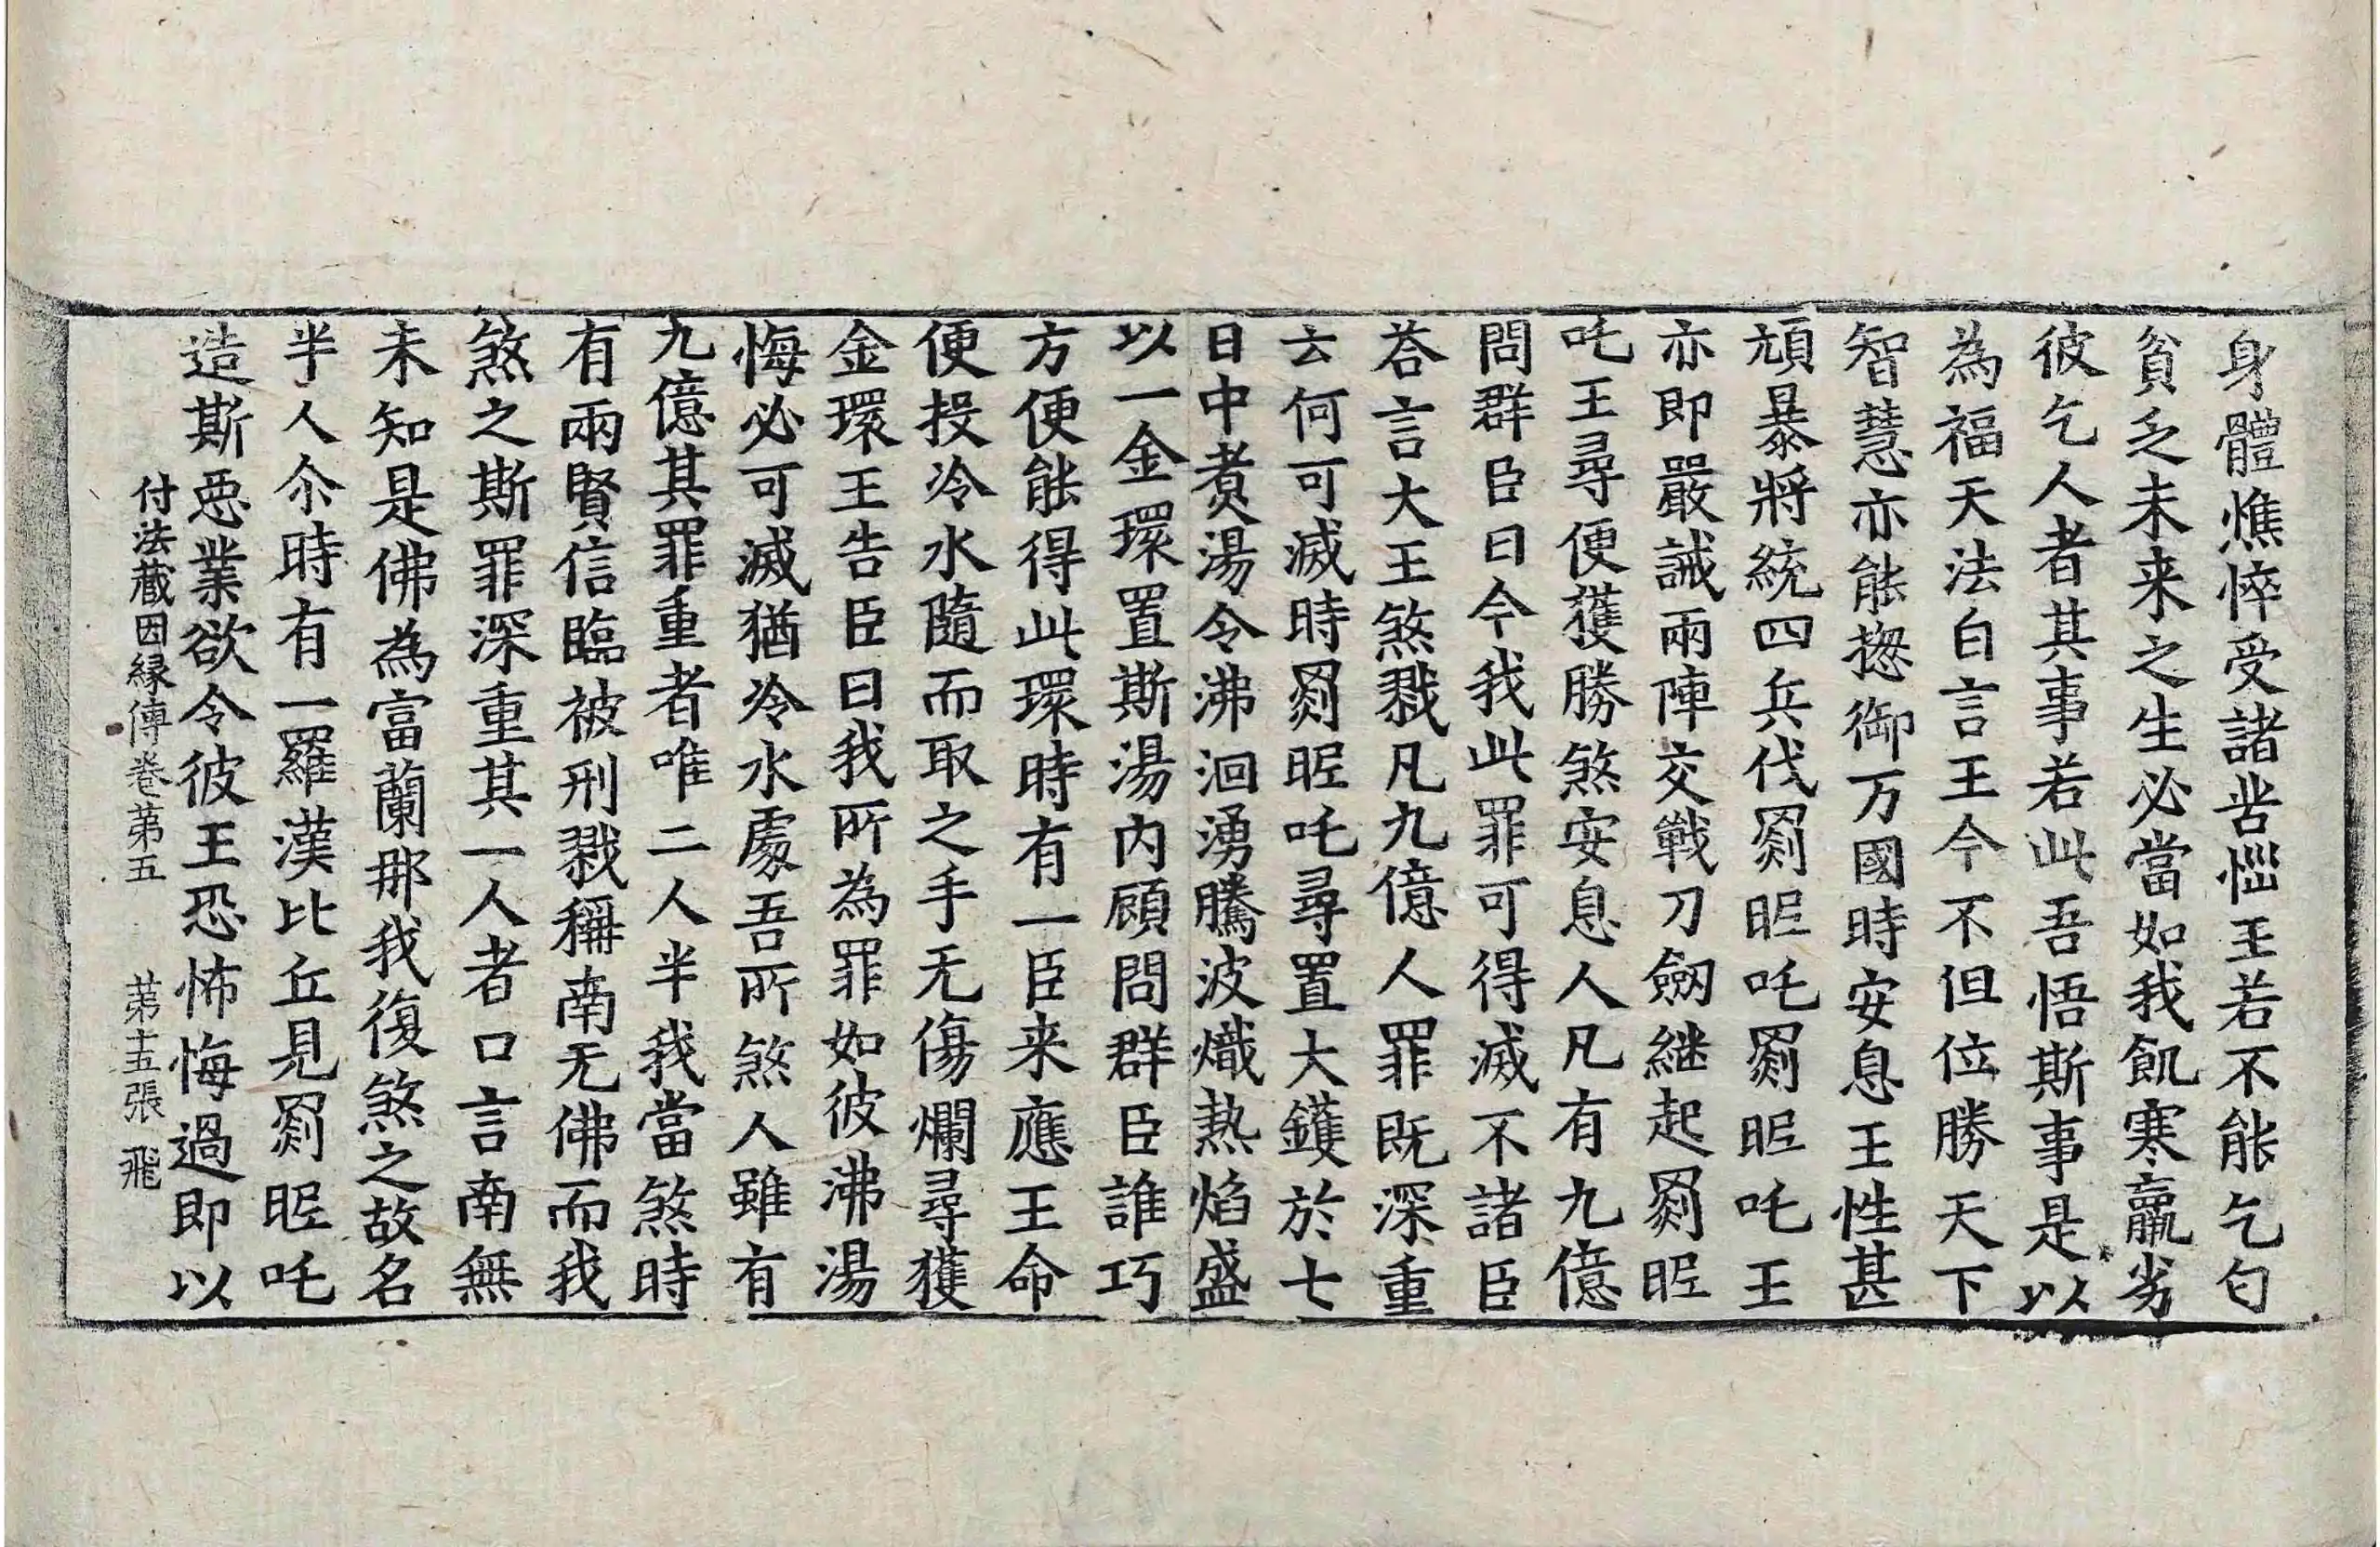 身體燋悴受諸苦惱王若不能乞匂
貧乏未来之生必當如我飢寒羸劣
彼乞人者其事若此吾悟斯事是以
為福天法白言王今不但位勝天下
智慧亦能揔御万國時安息王性甚
頑暴將統四兵伐罽昵吒罽昵吒王
亦即嚴誡兩陣交戰刀劔継起罽昵
吒王尋便獲勝煞安息人凡有九億
問群臣曰今我此罪可得滅不諸臣
荅言大王煞戮凡九億人罪既深重
云何可滅時罽昵吒尋置大鑊於七
日中煑湯令沸洄湧騰波熾熱焰盛
以一金環置斯湯内顧問群臣誰巧
方便能得此環時有一臣来應王命
便投冷水隨而取之手无傷爛尋獲
金環王告臣曰我所為罪如彼沸湯
悔必可滅猶冷水處吾所煞人雖有
九億其罪重者唯二人半我當煞時
有兩賢信臨被刑戮稱南无佛而我
煞之斯罪深重其一人者口言南無
未知是佛為富蘭那我復煞之故名
半人尒時有一羅漢比丘見罽昵吒
造斯惡業欲令彼王恐怖悔過即以
付法藏因縁傳卷苐五 苐十五張 飛